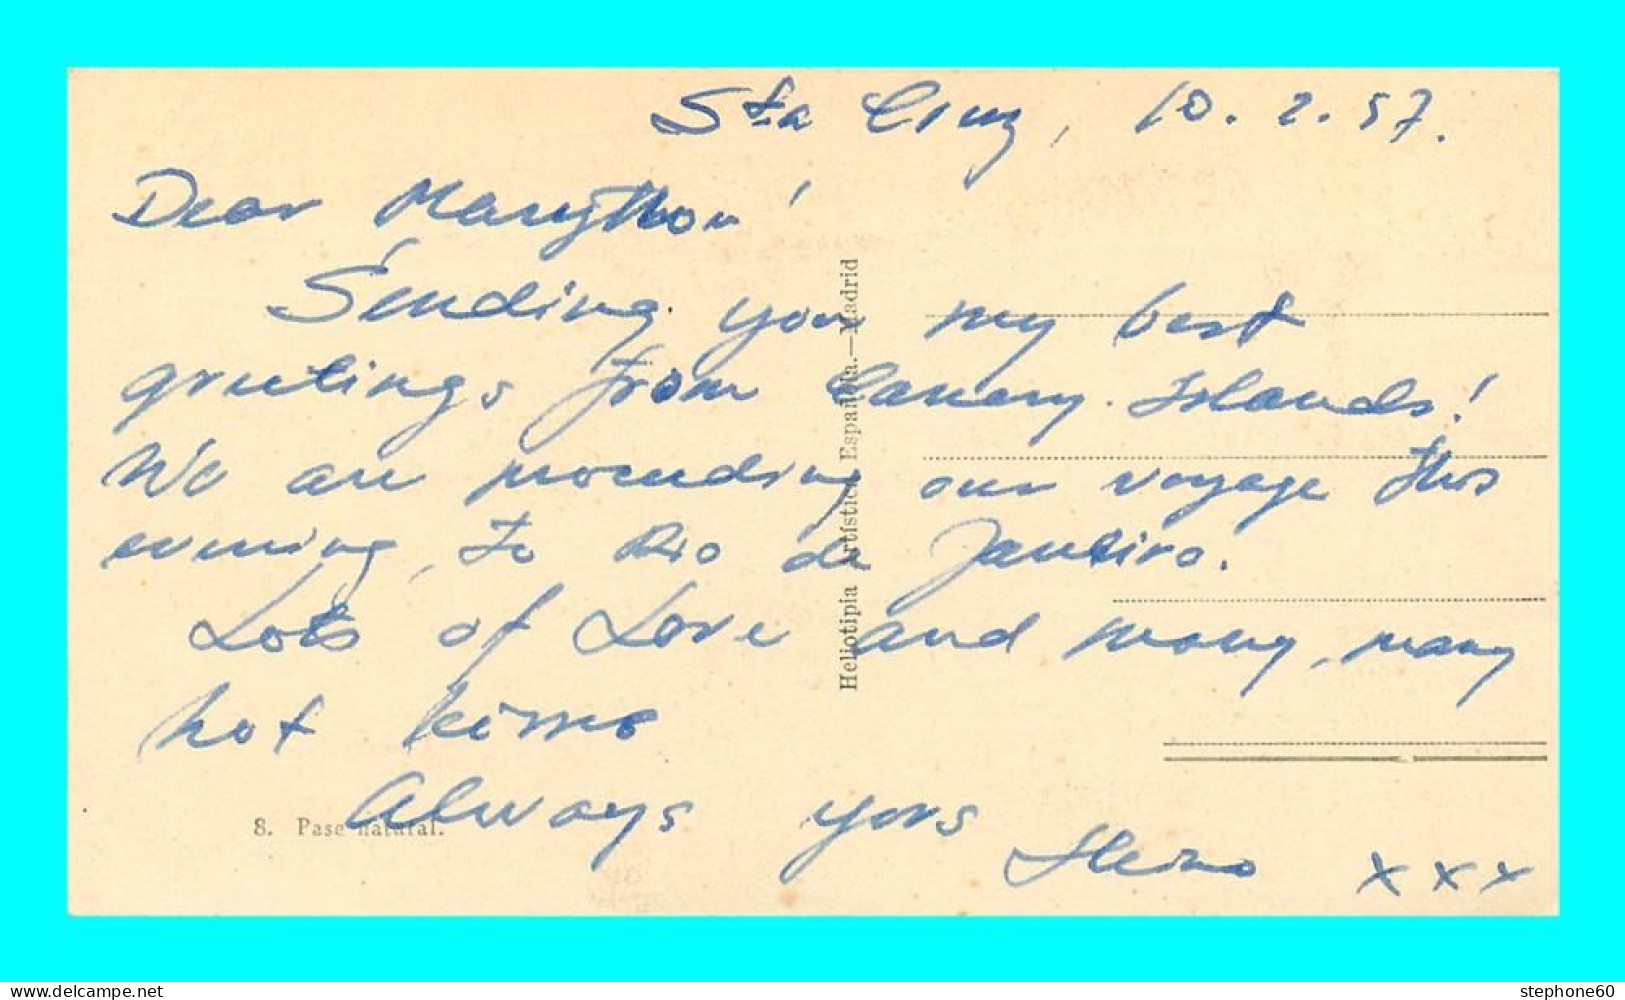 Sta Cruz, 10.2.57.
Dear Marython!
Sending you my best
greetings from Canary Islands!
We are proceeding our voyage this
evening, to Rio de Janeiro.
Lots of Love and many, many
hot kisses
Always yors
Heino xxx
8. Pase natural.
Heliotipia Artística Española.—Madrid
stephone60